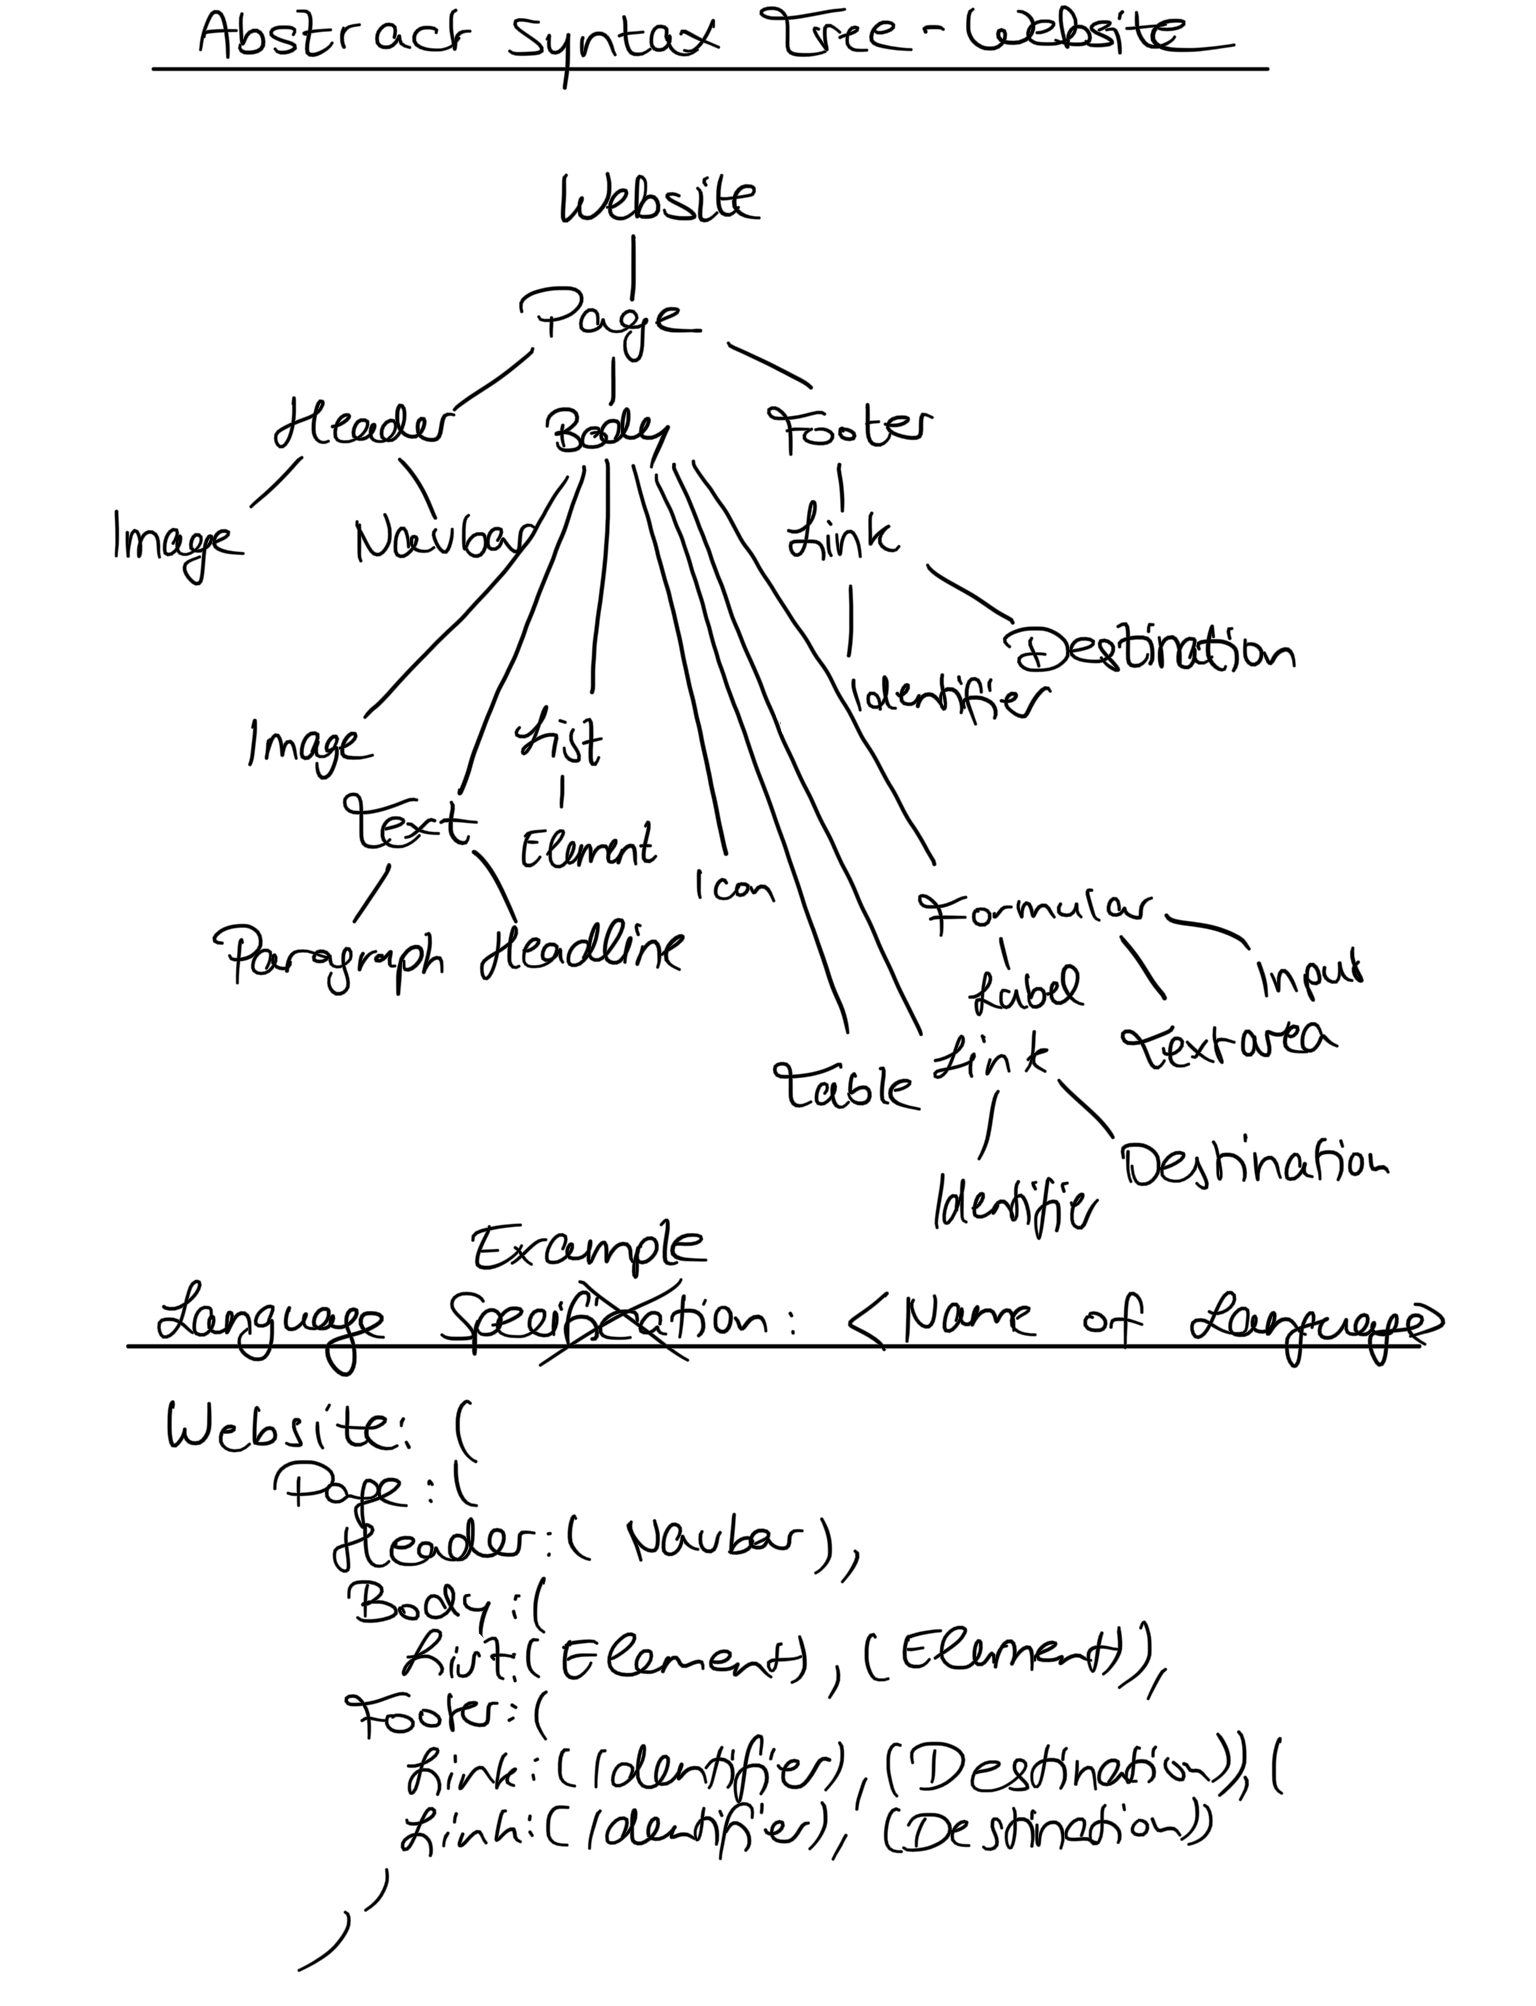 Abstract Syntax Tree - Website
Website
Page
Header Body Footer
Image Navbar Link
Destination
Identifier
Image List
Text Element
Icon
Formular
Paragraph Headline
Label Input
Textarea
Table Link
Destination
Identifier
Example
Language Specification: <Name of Language>
Website: (
Page: (
Header: ( Navbar ),
Body: (
List: ( Element ), ( Element )),
Footer: (
Link: ( Identifier ), ( Destination )), (
Link: ( Identifier ), ( Destination ))
)
)